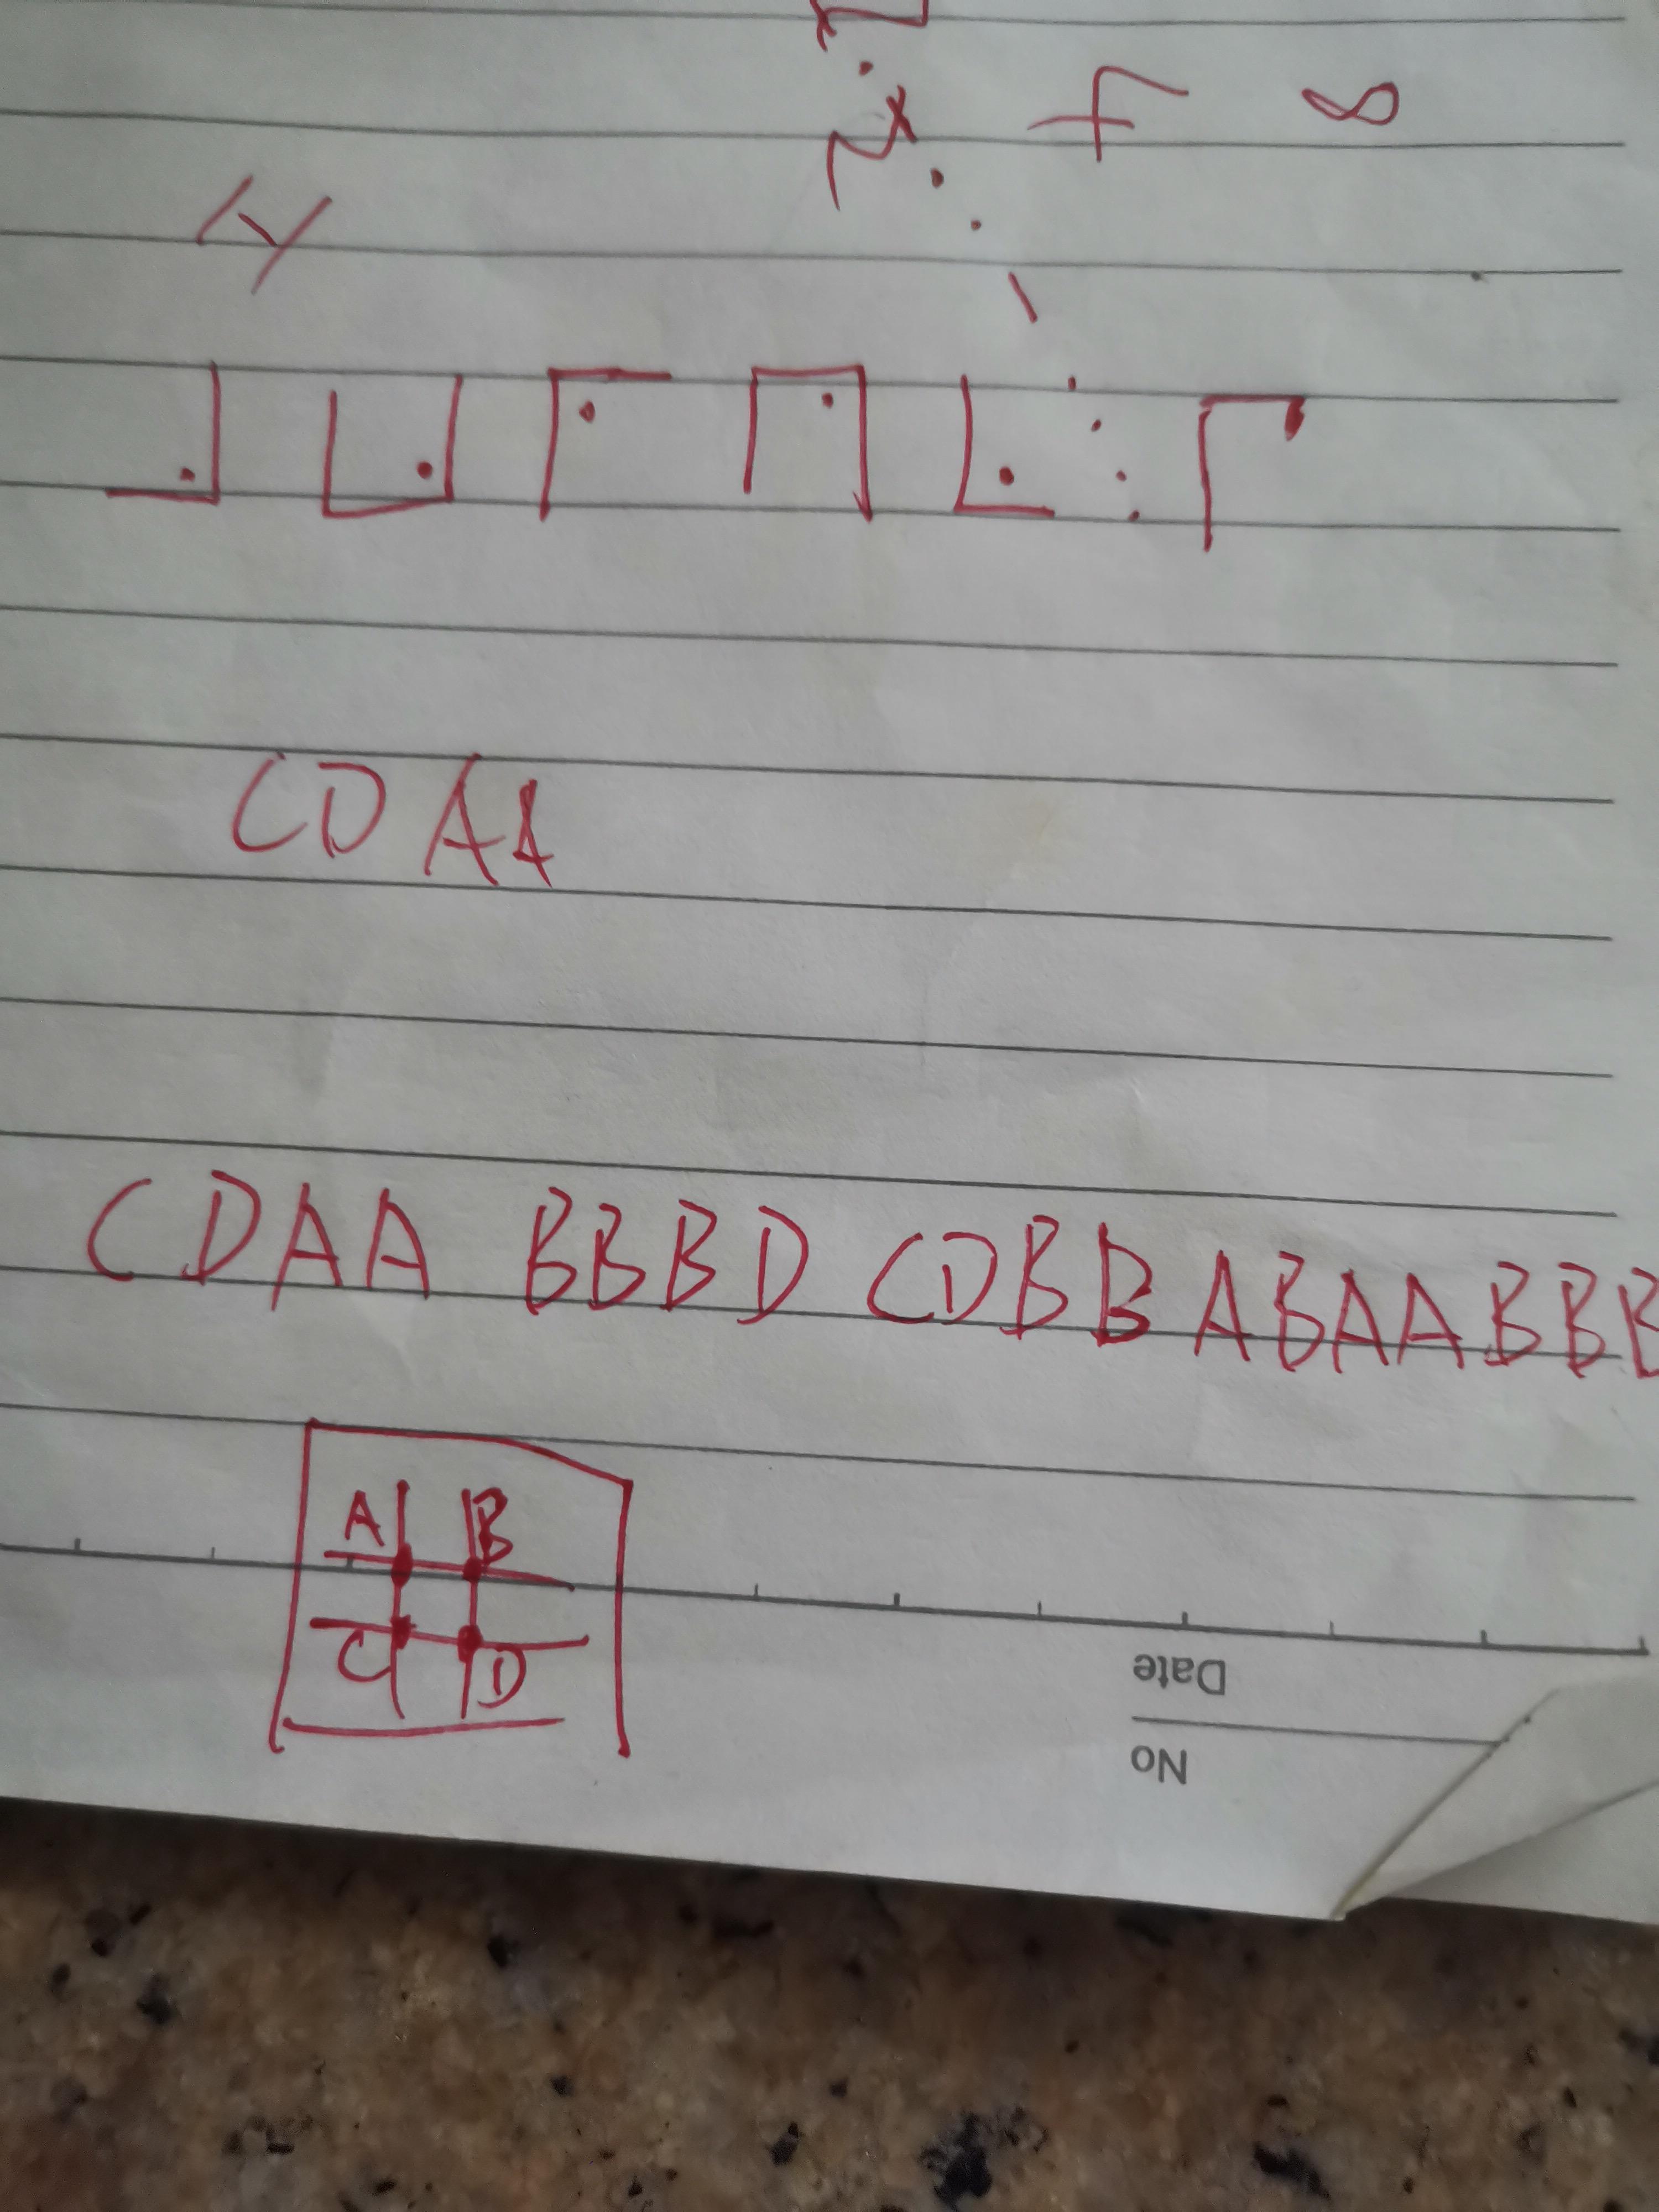 CDAA
CDAA BBBD CDBB ABAABBB
A B
C D
Date
No